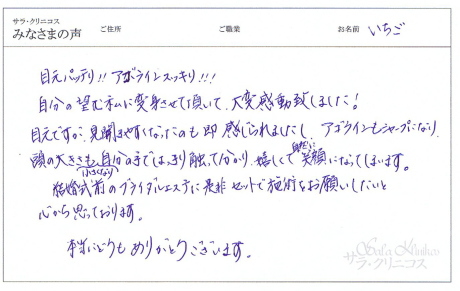 サラ・クリニコス
みなさまの声 ご住所 ご職業 お名前 いちご
目元パッチリ!! アゴラインスッキリ!!!
自分の望む私に変身させて頂いて、大変感動致しました!
目元ですが、見開きやすくなったのも即感じられましたし、アゴラインもシャープになり、
頭の大きさも(小さくなり)自分の手ではっきり触って分かり、嬉しくて自然に笑顔になってしまいます。
結婚式前のブライダルエステに是非セットで施術をお願いしたいと
心から思っております。
本当にどうもありがとうございます。
Sala Klinikos
サラ・クリニコス